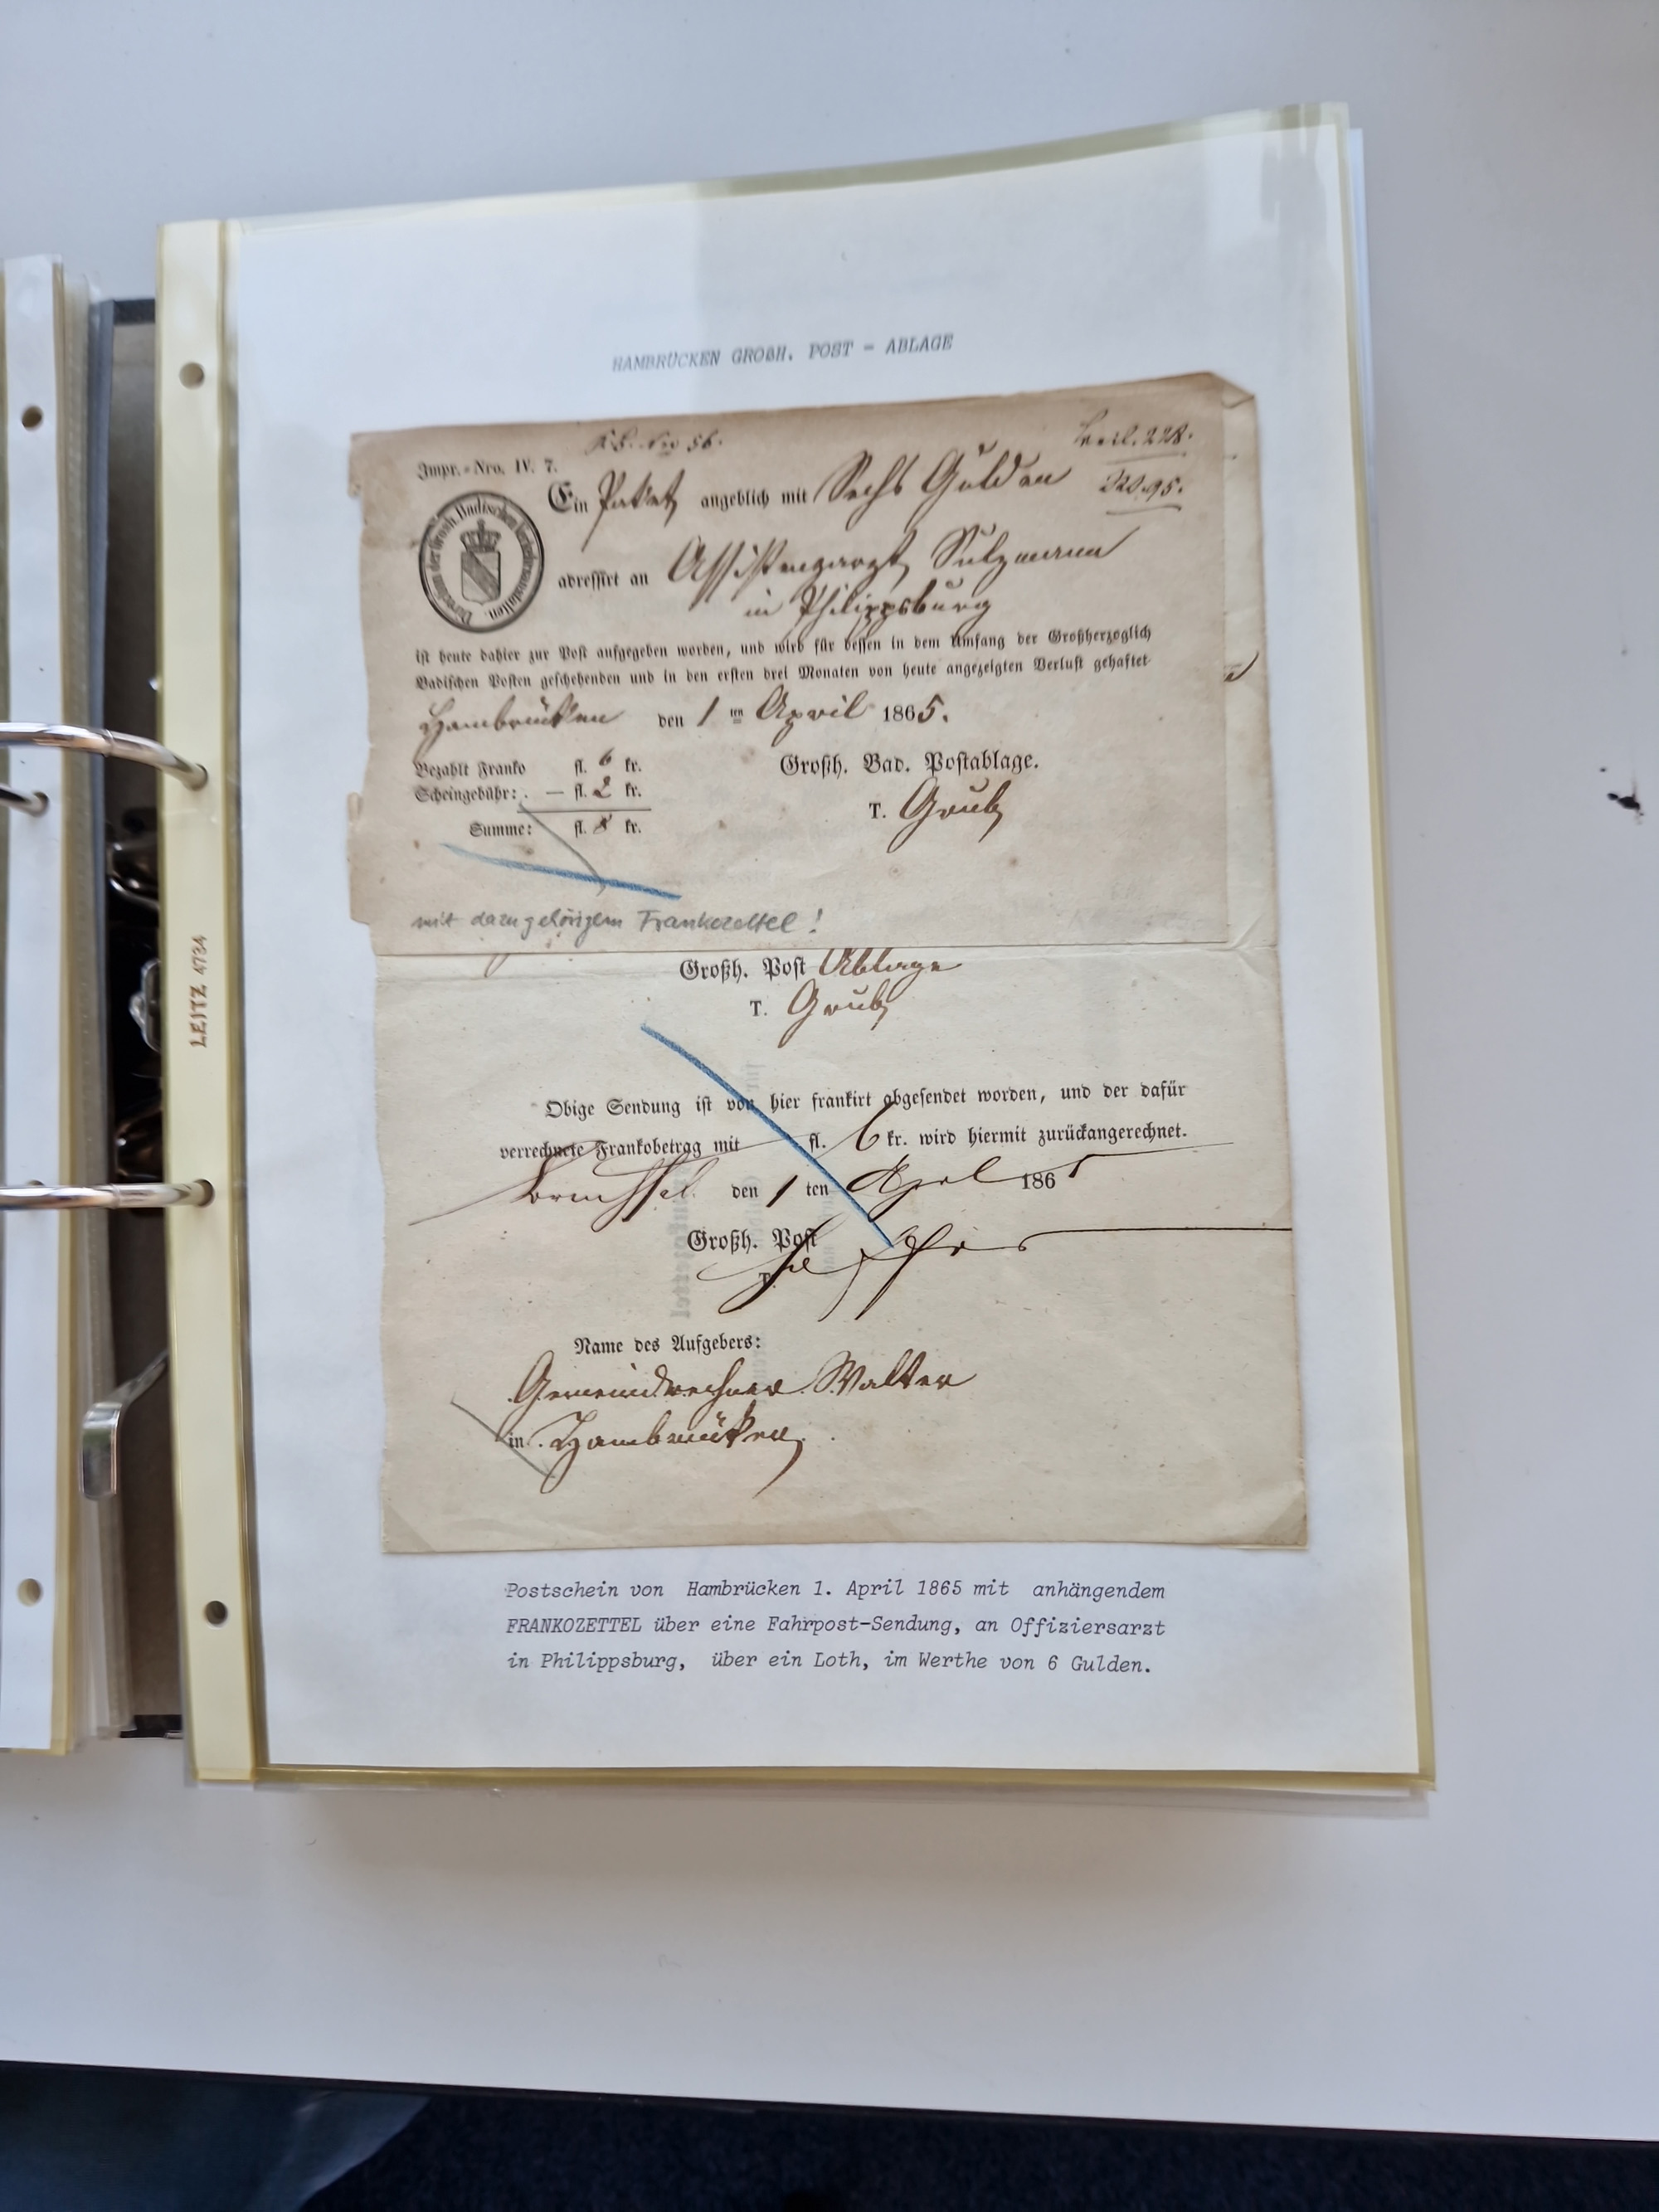 HAMBRÜCKEN GROßH. POST - ABLAGE
56.
228.
Impr.-Nro. IV. 7.
Ein Paket angeblich mit Sechs Gulden
220.95.
Direction der Grosh. Badischen Verkehrsanstalten.
adressirt an Assistenzarzt Sulzmann
in Philippsburg
ist heute dahier zur Post aufgegeben worden, und wird für dessen in dem Umfang der Großherzoglich
Badischen Posten geschehenden und in den ersten drei Monaten von heute angezeigten Verlust gehaftet
Hambrücken den 1 ten April 1865.
Bezahlt Franko fl. 6 kr.
Scheingebühr: . — fl. 2 kr.
Summe: fl. 8 kr.
Großh. Bad. Postablage.
T. Grub
mit dazugehörigem Frankozettel!
Großh. Post Ablage
T. Grub
Obige Sendung ist von hier frankirt abgesendet worden, und der dafür
verrechnete Frankobetrag mit fl. 6 kr. wird hiermit zurückangerechnet.
Bruchsal den 1 ten April 1865
Großh. Post
T.
Name des Aufgebers:
Gemeindrechner Walter
in Hambrücken
Postschein von Hambrücken 1. April 1865 mit anhängendem
FRANKOZETTEL über eine Fahrpost-Sendung, an Offiziersarzt
in Philippsburg, über ein Loth, im Werthe von 6 Gulden.
LEITZ 4734